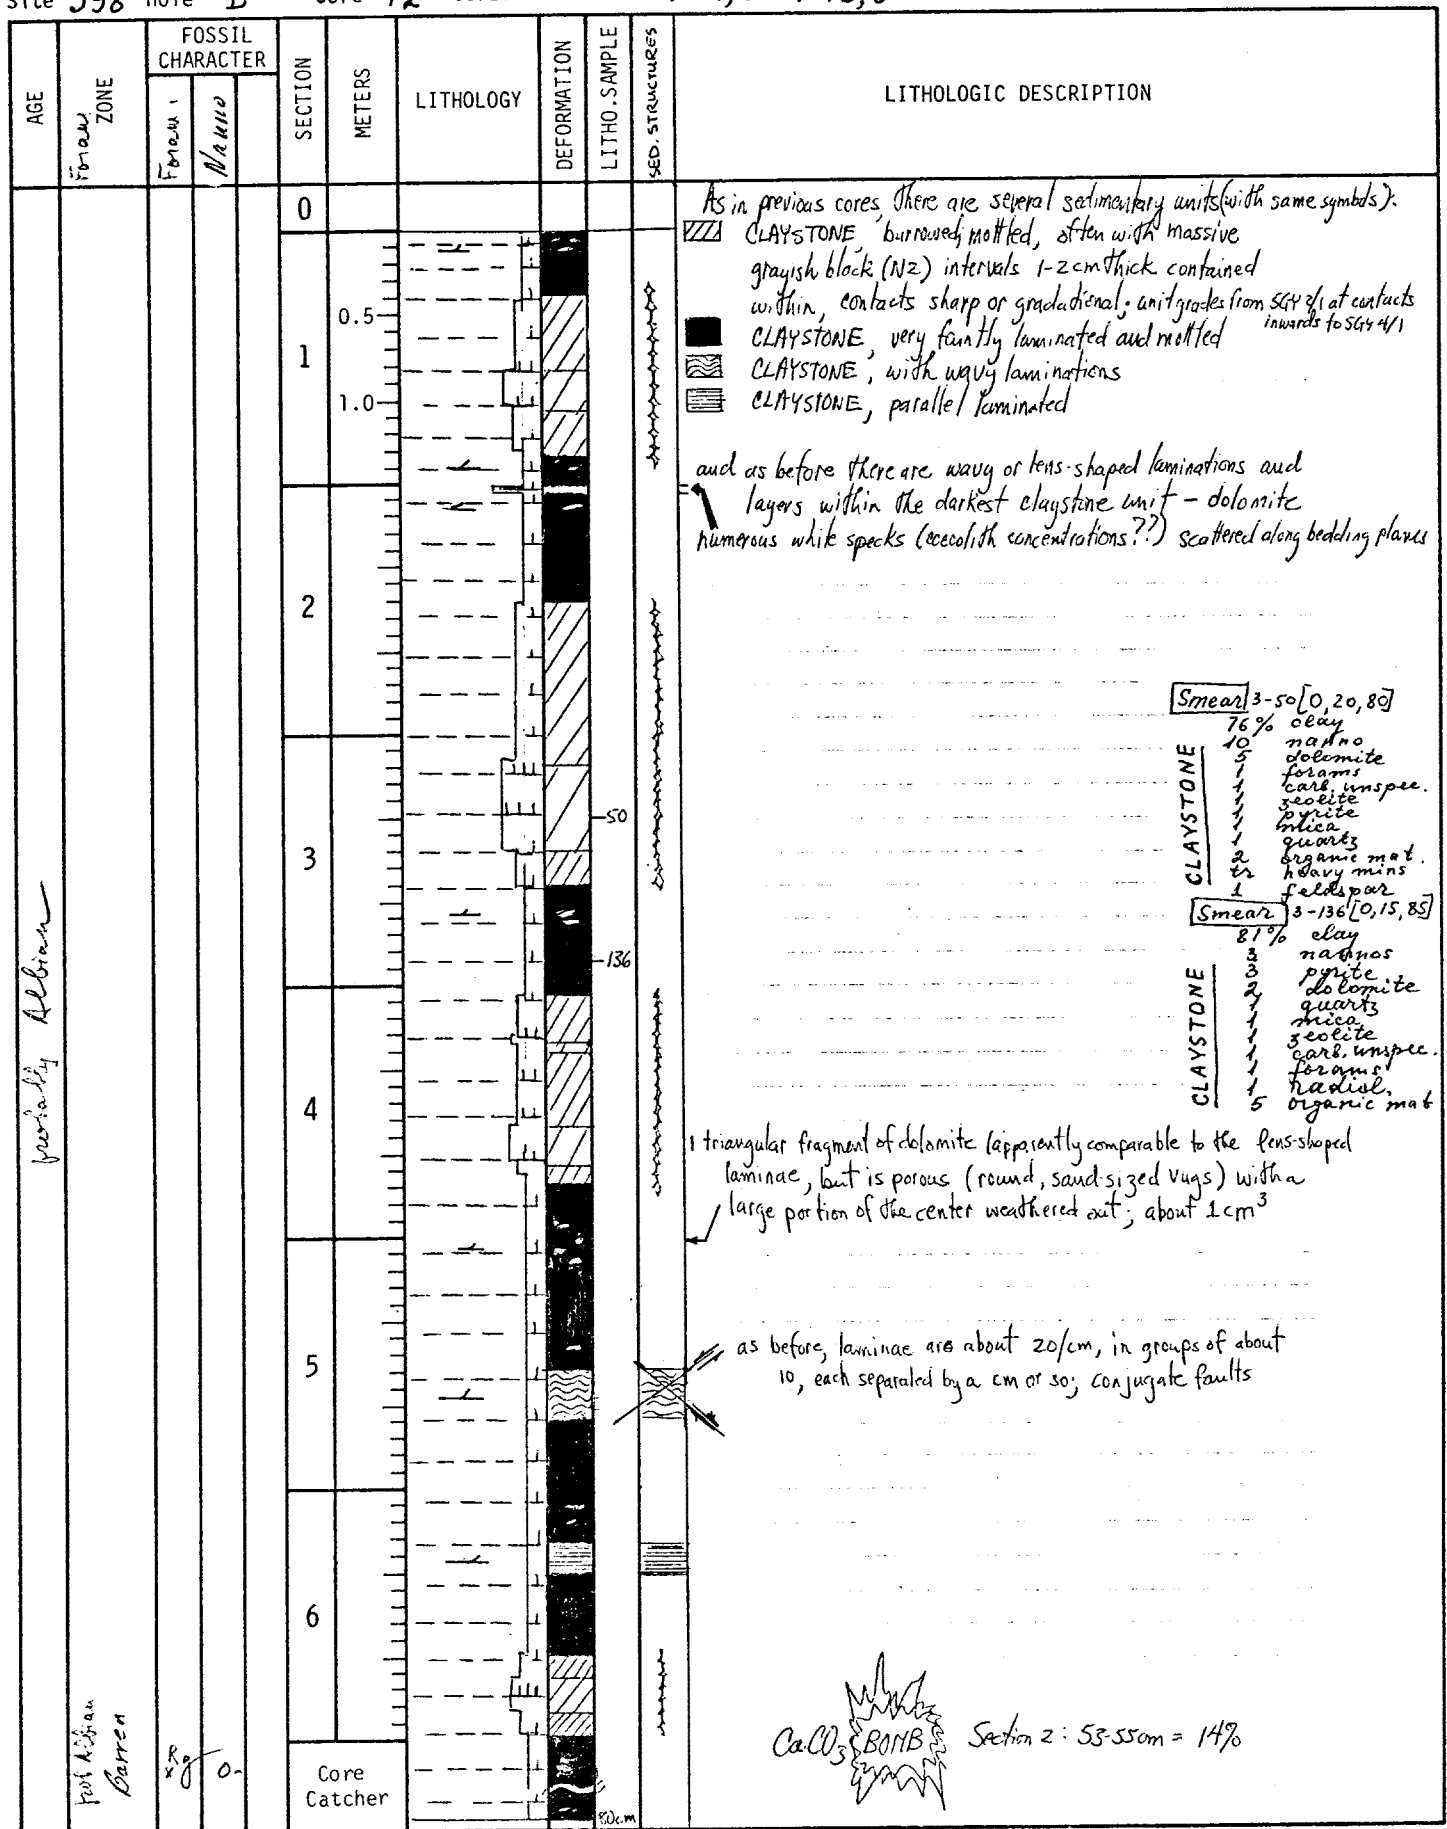 Site 398 Hole D Core 72
AGE
Foram ZONE
FOSSIL CHARACTER
Foram.
Nanno
SECTION
METERS
LITHOLOGY
DEFORMATION
LITHO.SAMPLE
SED. STRUCTURES
LITHOLOGIC DESCRIPTION
0
As in previous cores, there are several sedimentary units (with same symbols):
CLAYSTONE, burrowed, mottled, often with massive
grayish black (N2) intervals 1-2 cm thick contained
within, contacts sharp or gradational; unit grades from 5GY 2/1 at contacts
inwards to 5GY 4/1
CLAYSTONE, very faintly laminated and mottled
CLAYSTONE, with wavy laminations
CLAYSTONE, parallel laminated
0.5
1
1.0
and as before there are wavy or lens-shaped laminations and
layers within the darkest claystone unit - dolomite
numerous white specks (coccolith concentrations??) scattered along bedding planes
2
Smear 3-50 [0, 20, 80]
CLAYSTONE
76% clay
10 nanno
5 dolomite
1 forams
1 carb. unspec.
1 zeolite
1 pyrite
1 mica
1 quartz
2 organic mat.
tr heavy mins
1 feldspar
50
3
Smear 3-136 [0, 15, 85]
CLAYSTONE
81% clay
3 nannos
3 pyrite
2 dolomite
1 quartz
1 mica
1 zeolite
1 carb. unspec.
1 forams
1 radiol.
5 organic mat
136
probably Albian
4
1 triangular fragment of dolomite (apparently comparable to the lens-shaped
laminae, but is porous (round, sand-sized vugs) with a
large portion of the center weathered out; about 1 cm³
5
as before, laminae are about 20/cm, in groups of about
10, each separated by a cm or so; conjugate faults
6
CaCO3 BOMB Section 2: 53-55cm = 14%
Albian
Barren
Rg
0-
Core
Catcher
80cm